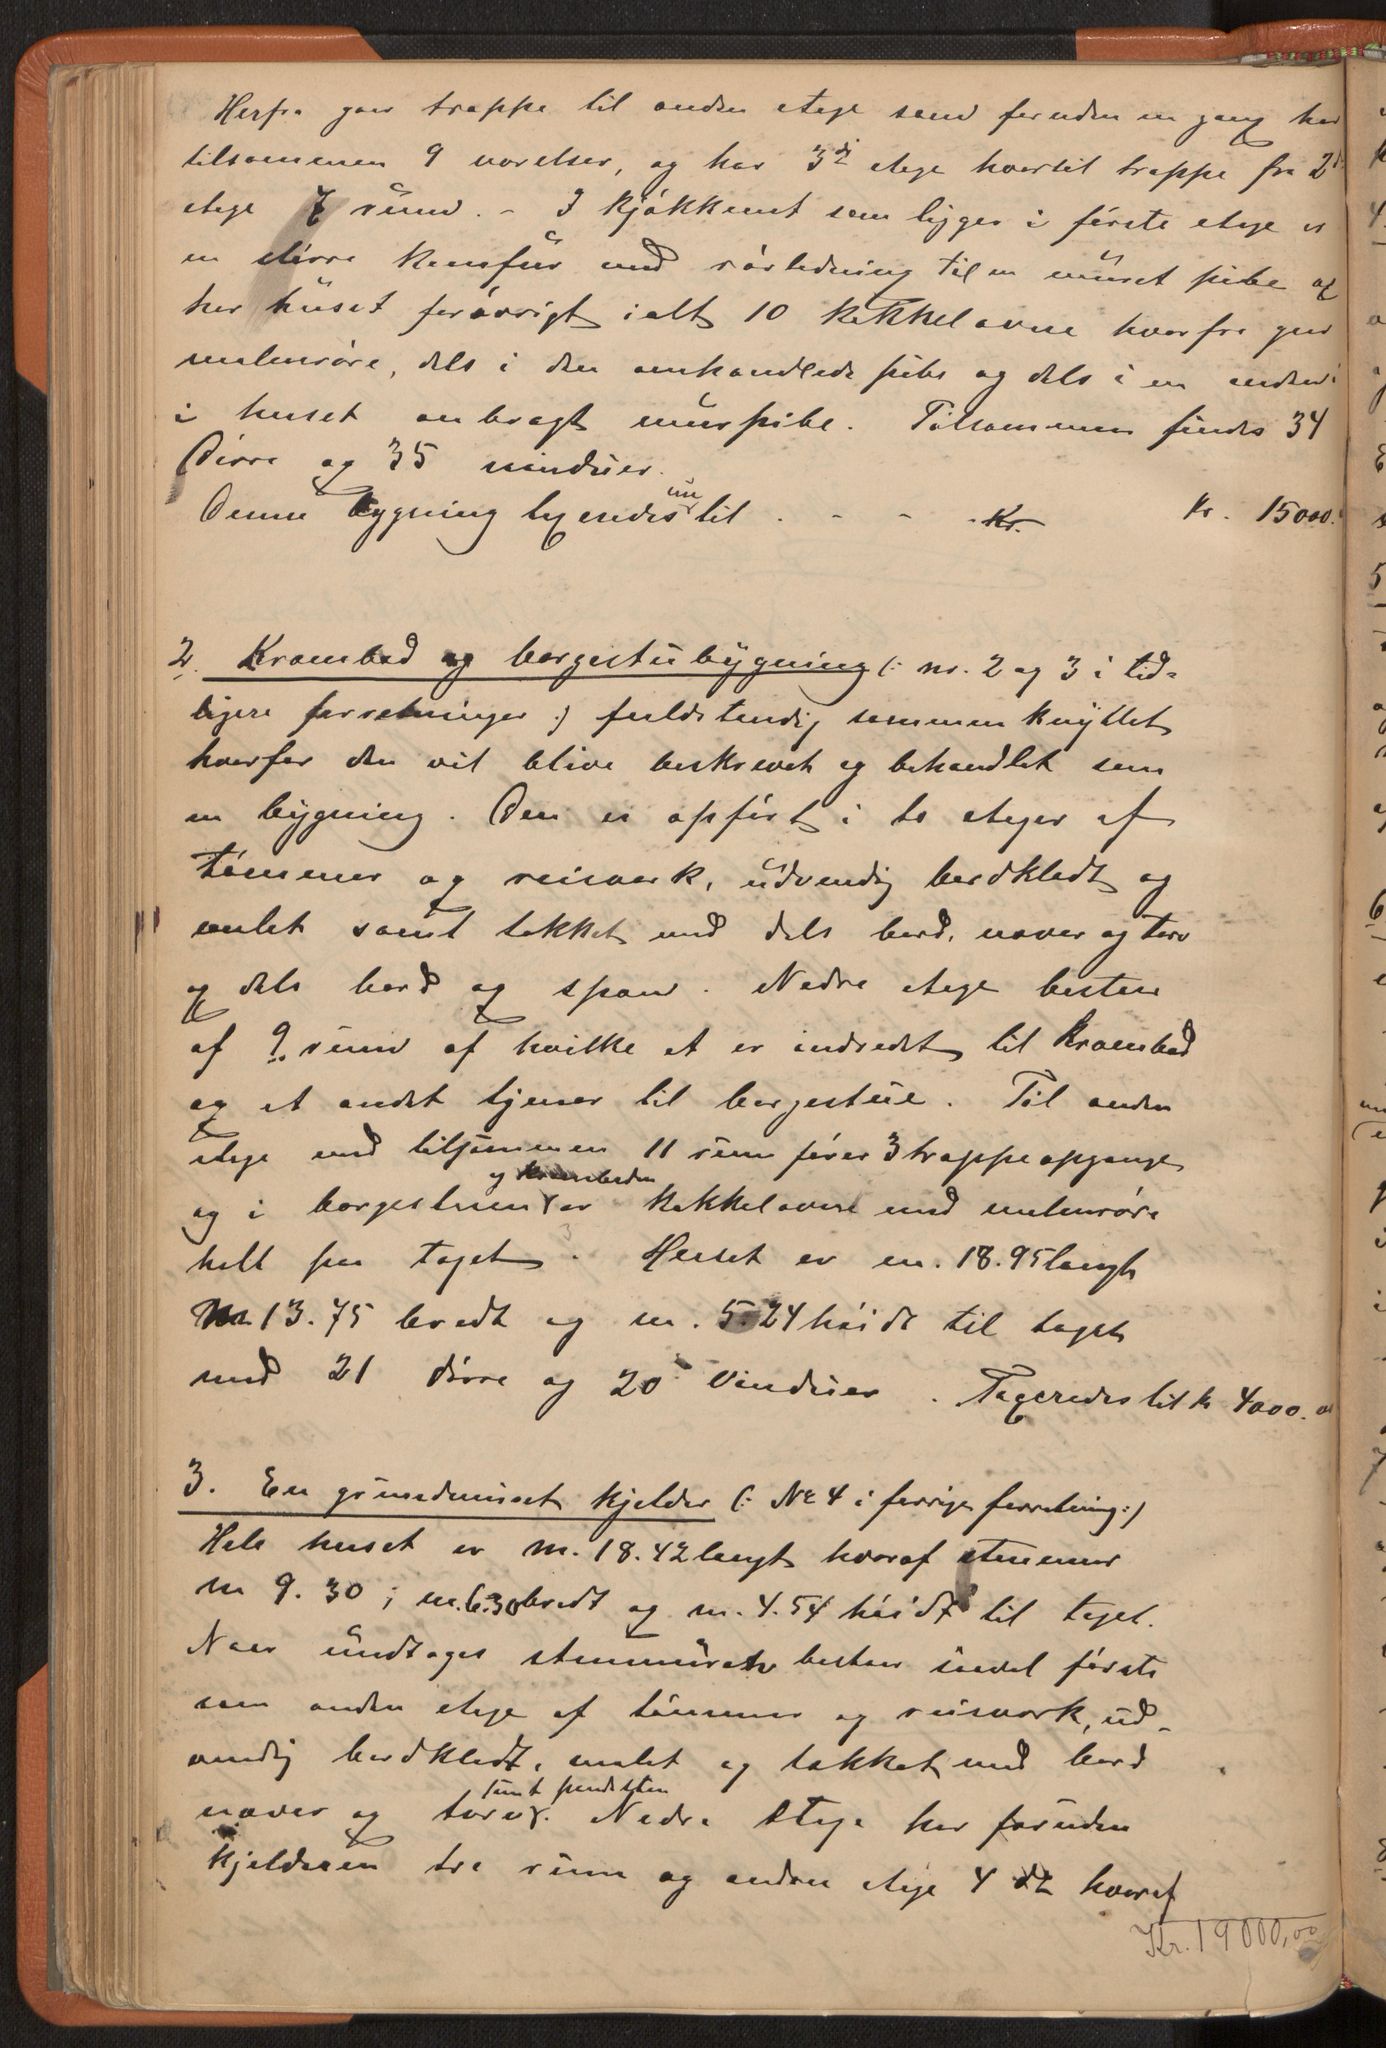 Herfra gaar trappe til anden etage som foruden en gang har
tilsammen 9 værelser, og har 3di etage hvortil trappe fra 2d
etage 7 rum. - I kjøkkenet som ligger i første etage er
en større komfur med rørledning til en muret pibe og
har huset forøvrigt ialt 10 kakkelovne hvorfra gaar
malmrøre, dels i den omhandlede pibe og dels i en anden
i huset anbragt murpibe. Tilsammen findes 34
Dørre og 35 vinduer.
Denne bygning taxeredes nu til . - - - Kr. Kr. 15000.
2. Krambod og borgestubygning (: nr. 2 og 3 i tid-
ligere forretninger :) fuldstændig sammenknyttet
hvorfor den vil blive beskrevet og behandlet som
en bygning. Den er opført i to etager af
tømmer og reisverk, udvendig bordklædt og
malet samt tækket med dels bord, næver og torv
og dels bord og spaan. Nedre etage bestaar
af 9 rum af hvilke et er indredet til krambod
og et andet tjener til borgestue. Til anden
etage med tilsammen 11 rum fører 3 trappeopgange
og i borgestuen og kramboden er kakkelovne med malmrøre
helt paa taget. Huset er m. 18.95 langt
m. 13.75 bredt og m. 5.24 høidt til taget
med 21 dørre og 20 vinduer. Taxeredes til kr 4000.00
3. En grundmuret kjelder (: No 4 i forrige forretning :)
Hele huset er m. 18.42 langt hvoraf stenmur
m 9.30; m. 6.30 bredt og m. 4.54 høidt til taget.
Naar undtages stenmuren bestaar saavel første
som anden etage af tømmer og reisverk, ud-
vendig bordklædt, malet og tækket med bord
næver og torv samt pandesten. Nedre etage har foruden
kjelderen tre rum og anden etage 4 do hvoraf
Kr. 19000,00